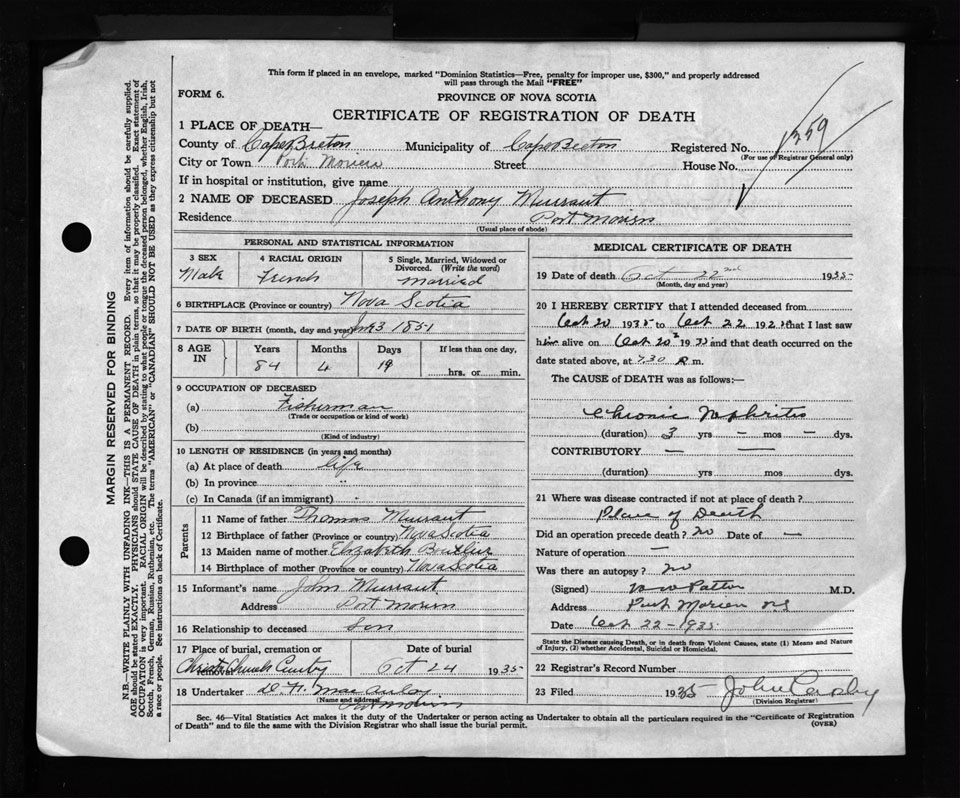 This form if placed in an envelope, marked "Dominion Statistics—Free, penalty for improper use, $300," and properly addressed
will pass through the Mail "FREE"
FORM 6.
PROVINCE OF NOVA SCOTIA
CERTIFICATE OF REGISTRATION OF DEATH
1 PLACE OF DEATH—
County of Cape Breton Municipality of Cape Breton Registered No. 1359
(For use of Registrar General only)
City or Town Port Morien Street House No.
If in hospital or institution, give name
2 NAME OF DECEASED Joseph Anthony Murrant
Residence Port Morien
(Usual place of abode)
PERSONAL AND STATISTICAL INFORMATION
3 SEX 4 RACIAL ORIGIN 5 Single, Married, Widowed or Divorced. (Write the word)
Male French married
6 BIRTHPLACE (Province or country) Nova Scotia
7 DATE OF BIRTH (month, day and year) 3 1851
8 AGE IN Years Months Days If less than one day,
84 4 19 hrs. or min.
9 OCCUPATION OF DECEASED
(a) Fisherman
(Trade or occupation or kind of work)
(b)
(Kind of industry)
10 LENGTH OF RESIDENCE (in years and months)
(a) At place of death life
(b) In province "
(c) In Canada (if an immigrant)
Parents
11 Name of father Thomas Murrant
12 Birthplace of father (Province or country) Nova Scotia
13 Maiden name of mother Elizabeth Boutlier
14 Birthplace of mother (Province or country) Nova Scotia
15 Informant's name John Murrant
Address Port Morien
16 Relationship to deceased Son
17 Place of burial, cremation or removal Date of burial
Christ Church Cemtry Oct 24 1935
18 Undertaker D. H. MacAulay
(Name and address) Pt Morien
MEDICAL CERTIFICATE OF DEATH
19 Date of death Oct 22nd 1935
(Month, day and year)
20 I HEREBY CERTIFY that I attended deceased from
Oct 20 1935 to Oct 22 192 that I last saw
him alive on Oct 20 19 and that death occurred on the
date stated above, at 7.30 P. m.
The CAUSE of DEATH was as follows:—
Chronic Nephritis
(duration) 3 yrs — mos — dys.
CONTRIBUTORY — —
(duration) yrs. mos. dys.
21 Where was disease contracted if not at place of death?
Place of Death
Did an operation precede death? no Date of —
Nature of operation —
Was there an autopsy? no
(Signed) Patton M.D.
Address Port Morien NS
Date Oct 22 - 1935
State the Disease causing Death, or in death from Violent Causes, state (1) Means and Nature
of Injury, (2) whether Accidental, Suicidal or Homicidal.
22 Registrar's Record Number
23 Filed 1935 John
(Division Registrar)
Sec. 46—Vital Statistics Act makes it the duty of the Undertaker or person acting as Undertaker to obtain all the particulars required in the "Certificate of Registration
of Death" and to file the same with the Division Registrar who shall issue the burial permit. (OVER)
MARGIN RESERVED FOR BINDING
N.B.—WRITE PLAINLY WITH UNFADING INK—THIS IS A PERMANENT RECORD. Every item of information should be carefully supplied.
AGE should be stated EXACTLY. PHYSICIANS should STATE CAUSE OF DEATH in plain terms, so that it may be properly classified. Exact statement of
OCCUPATION is very important. RACIAL ORIGIN will be described by stating to what people or tongue the deceased person belonged, whether English, Irish,
Scotch, French, German, Russian, Ruthenian, etc. The terms "AMERICAN" or "CANADIAN" SHOULD NOT BE USED as they express citizenship but not
a race or people. See instructions on back of Certificate.